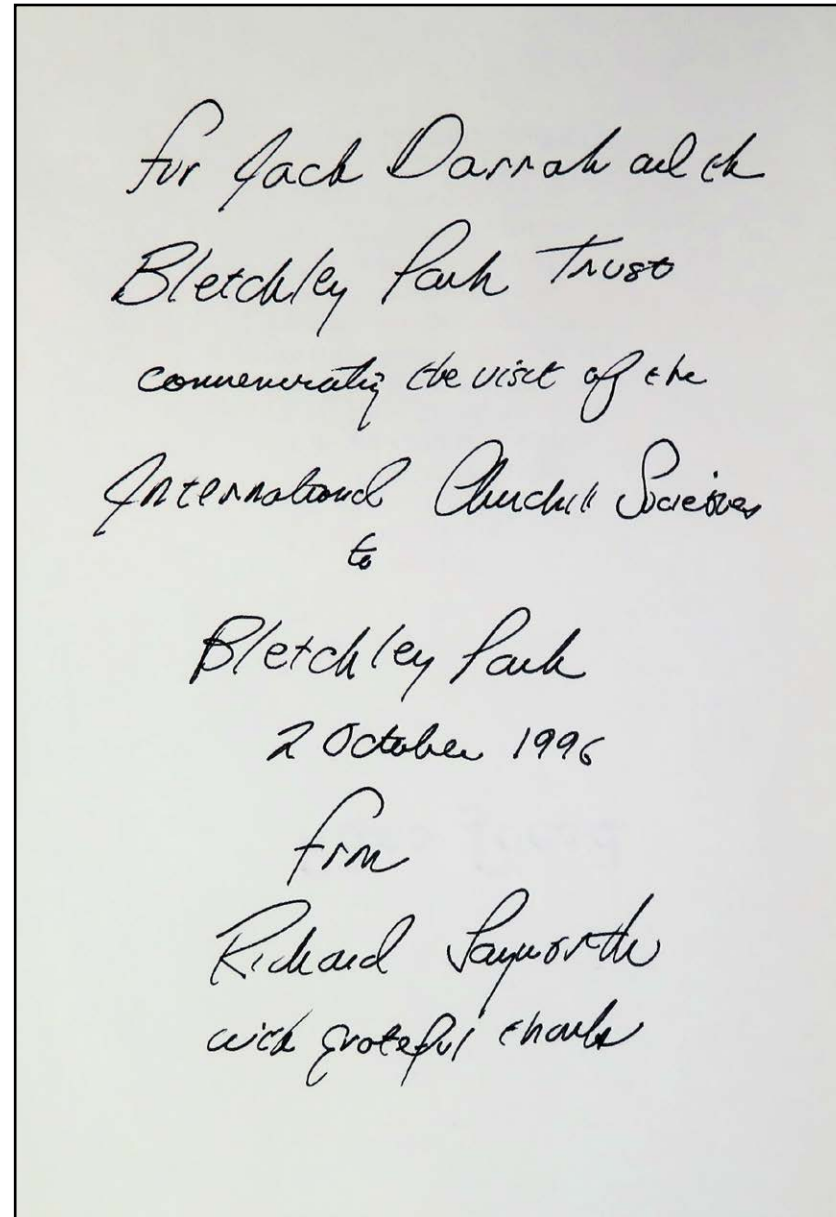 for Jack Darrah and the
Bletchley Park Trust
commemorating the visit of the
International Churchill Societies
to
Bletchley Park
2 October 1996
from
Richard
with grateful thanks